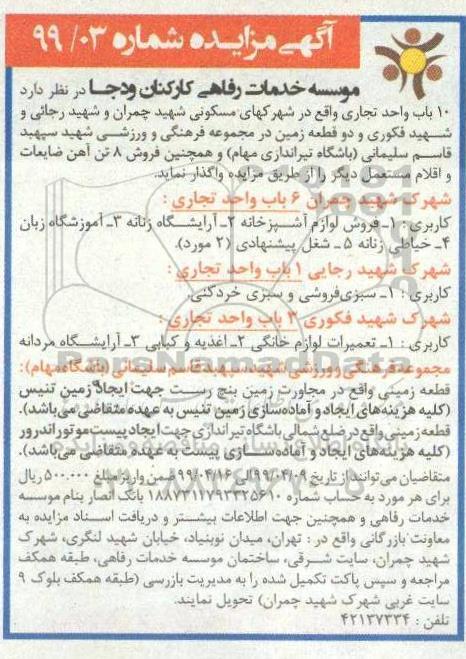 آگهی مزایده شماره ۹۹/۰۳
موسسه خدمات رفاهی کارکنان ودجا در نظر دارد
۱۰ باب واحد تجاری واقع در شهرکهای مسکونی شهید چمران و شهید رجائی و
شهید فکوری و دو قطعه زمین در مجموعه فرهنگی و ورزشی شهید سپهبد
قاسم سلیمانی (باشگاه تیراندازی مهام) و همچنین فروش ۸ تن آهن ضایعات
و اقلام مستعمل دیگر را از طریق مزایده واگذار نماید.
شهرک شهید چمران ۶ باب واحد تجاری :
کاربری : ۱ـ فروش لوازم آشپزخانه ۲ـ آرایشگاه زنانه ۳ـ آموزشگاه زبان
۴ـ خیاطی زنانه ۵ ـ شغل پیشنهادی (۲ مورد).
شهرک شهید رجایی ۱ باب واحد تجاری :
کاربری : ۱ـ سبزی‌فروشی و سبزی خردکنی.
شهرک شهید فکوری ۳ باب واحد تجاری :
کاربری : ۱ـ تعمیرات لوازم خانگی ۲ـ اغذیه و کبابی ۳ـ آرایشگاه مردانه
مجموعه فرهنگی ورزشی شهید سپهبد قاسم سلیمانی (باشگاه مهام):
قطعه زمینی واقع در مجاورت زمین پنج رست جهت ایجاد زمین تنیس
(کلیه هزینه‌های ایجاد و آماده‌سازی زمین تنیس به عهده متقاضی می‌باشد).
قطعه زمینی واقع در ضلع شمالی باشگاه تیراندازی جهت ایجاد پیست موتور اندرور
(کلیه هزینه‌های ایجاد و آماده‌سازی پیست به عهده متقاضی می‌باشد).
متقاضیان می‌توانند از تاریخ ۹۹/۰۴/۰۹ الی ۹۹/۰۴/۱۶ ضمن واریز مبلغ ۵۰۰.۰۰۰ ریال
برای هر مورد به حساب شماره بانک انصار بنام موسسه
خدمات رفاهی و همچنین جهت اطلاعات بیشتر و دریافت اسناد مزایده به
معاونت بازرگانی واقع در : تهران، میدان نوبنیاد، خیابان شهید لنگری، شهرک
شهید چمران، سایت شرقی، ساختمان موسسه خدمات رفاهی، طبقه همکف
مراجعه و سپس پاکت تکمیل شده را به مدیریت بازرسی (طبقه همکف بلوک ۹
سایت غربی شهرک شهید چمران) تحویل نمایند.
تلفن : ۴۲۱۳۷۳۳۴
ParsNamadData